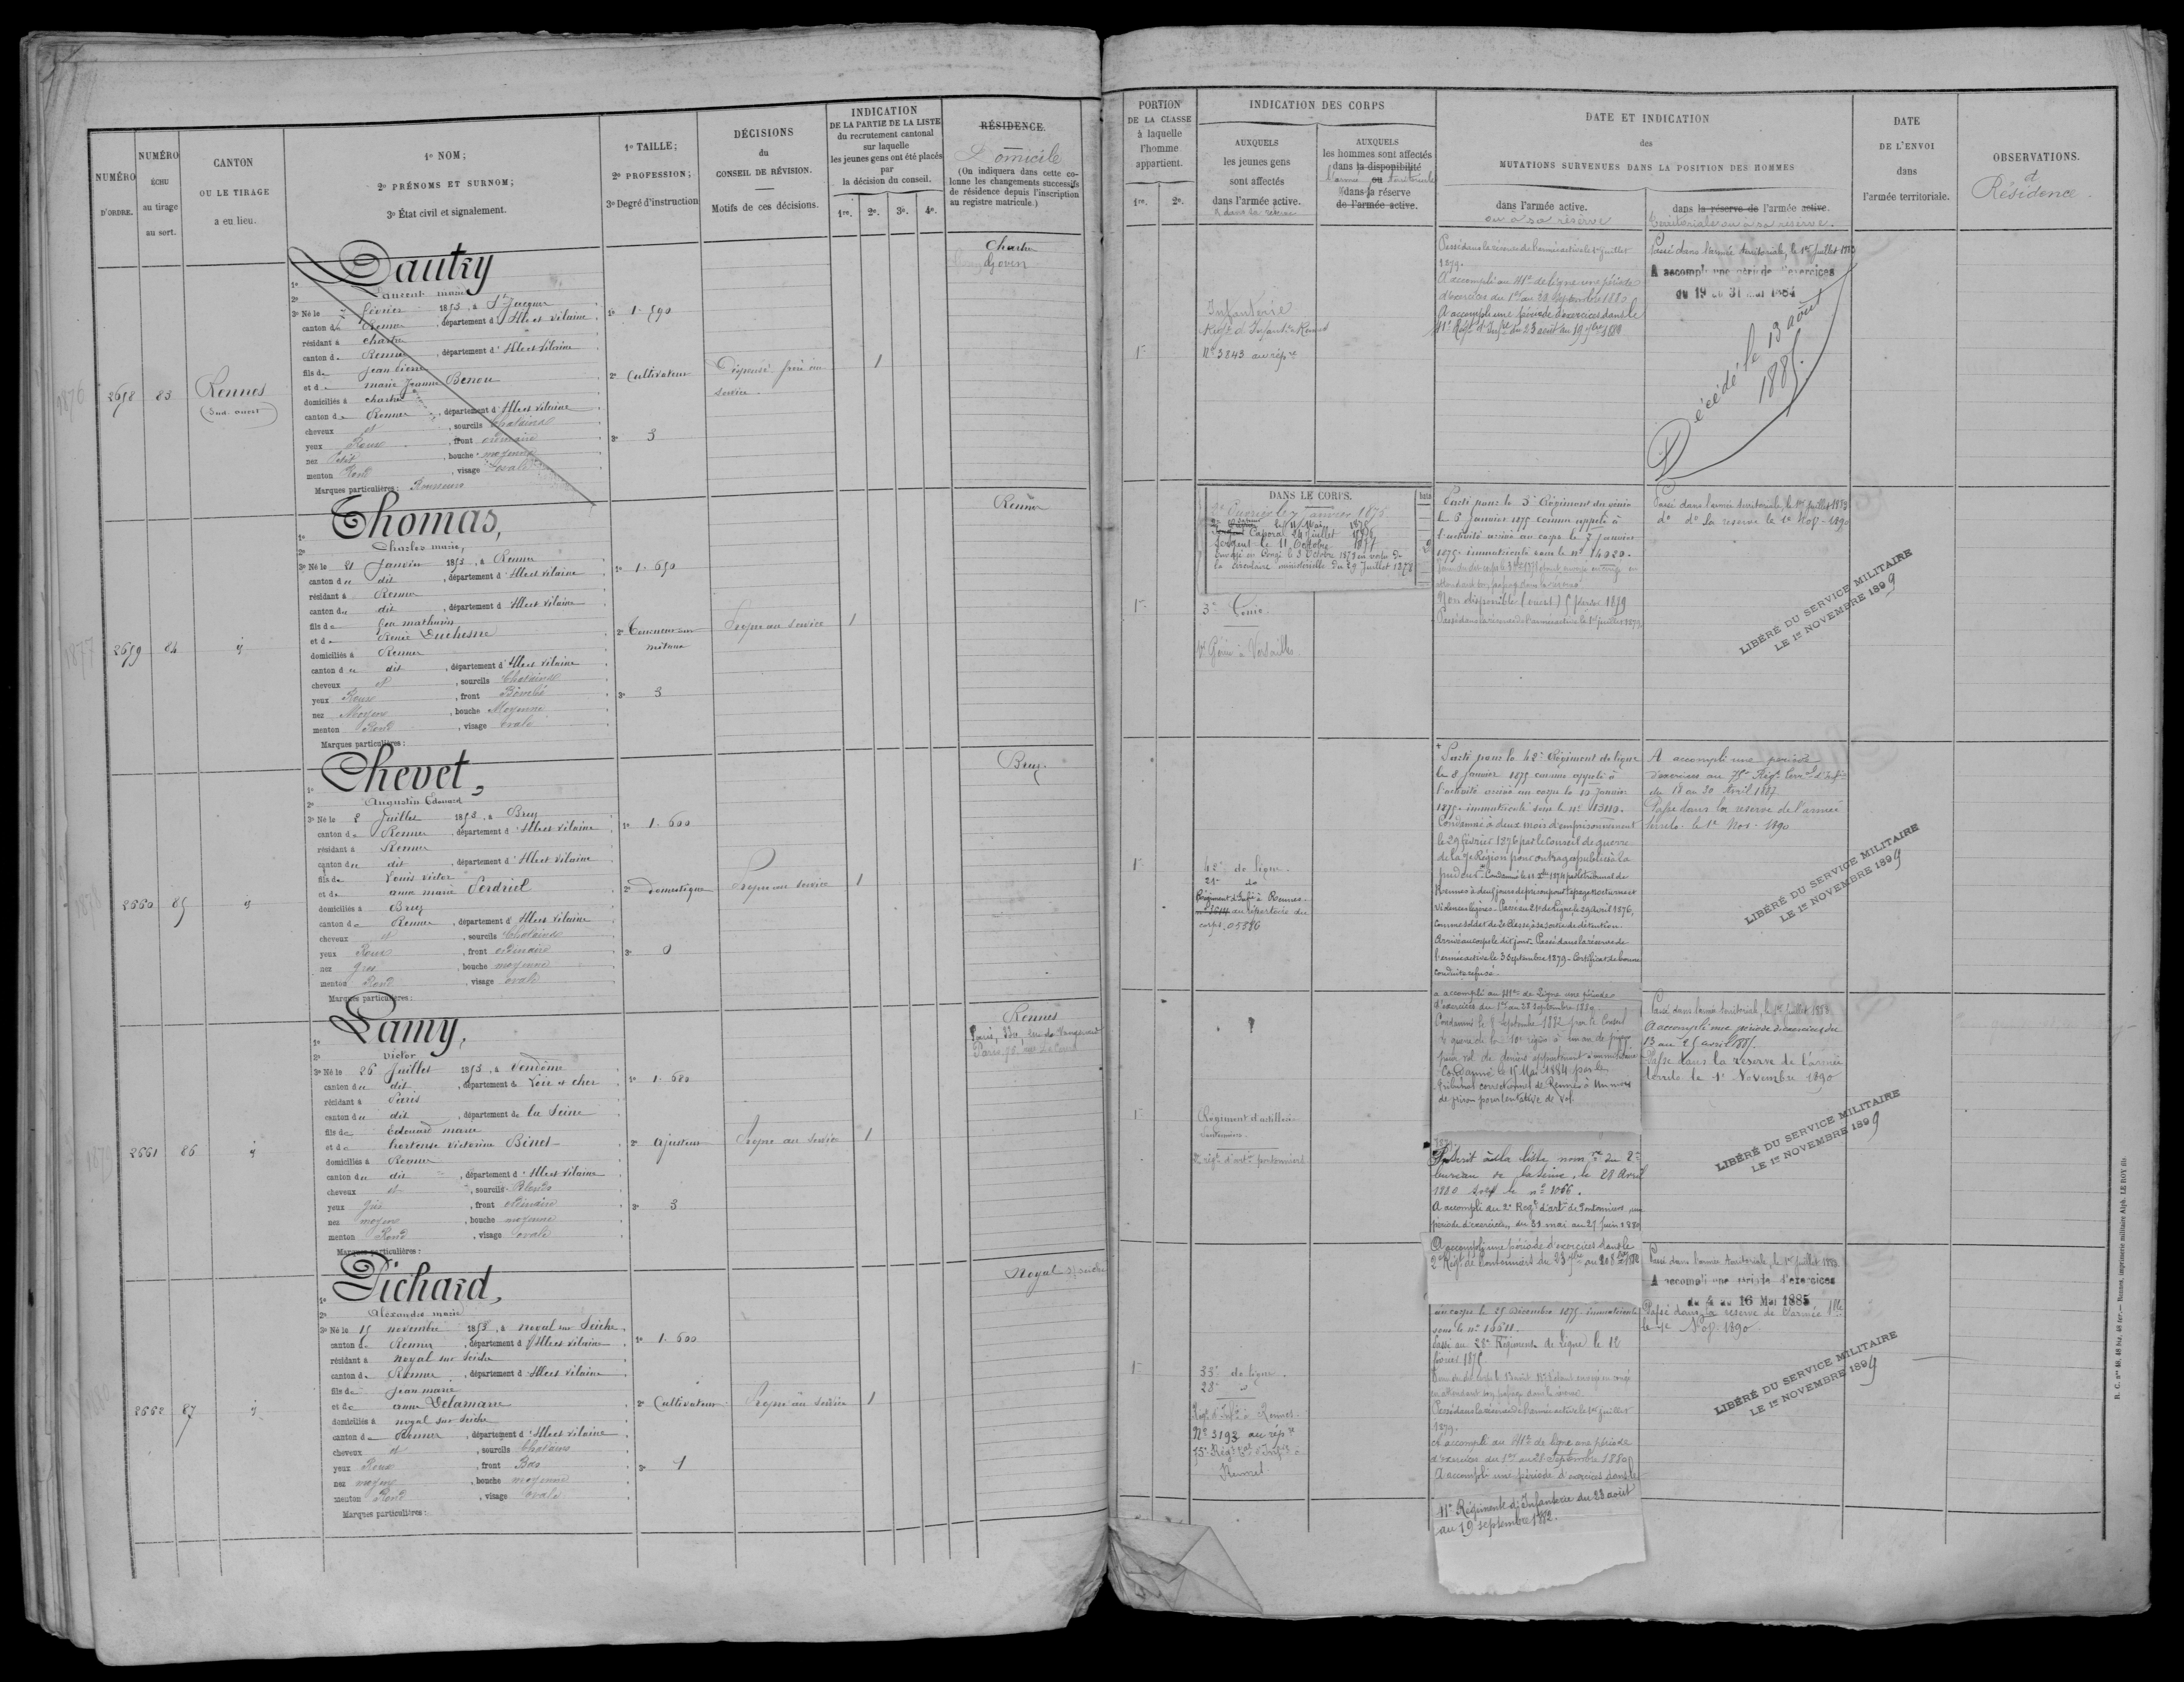 NUMÉRO D'ORDRE.
NUMÉRO ÉCHU au tirage au sort.
CANTON OU LE TIRAGE a eu lieu.
1º NOM;
2º PRÉNOMS ET SURNOM;
3º État civil et signalement.
1º TAILLE;
2º PROFESSION;
3º Degré d'instruction
DÉCISIONS du CONSEIL DE RÉVISION.
Motifs de ces décisions.
INDICATION DE LA PARTIE DE LA LISTE
du recrutement cantonal sur laquelle
les jeunes gens ont été placés par
la décision du conseil.
1re. 2e. 3e. 4e.
RÉSIDENCE.
Domicile
(On indiquera dans cette co-
lonne les changements successifs
de résidence depuis l'inscription
au registre matricule.)
2658
83
Rennes
(Sud ouest)
Dautry
1º
2º marie
3º Né le 7 février 1853, à St Jacques
canton de Rennes, département d'Ille et Vilaine
résidant à chartres
canton de Rennes, département d'Ille et Vilaine
fils de jean pierre
et de marie jeanne Benou
domiciliés à chartres
canton de Rennes, département d'Ille et Vilaine
cheveux et, sourcils Chatains
yeux Roux, front ordinaire
nez Petit, bouche moyenne
menton Rond, visage ovale
Marques particulières: Rousseurs
1º 1.590
2º Cultivateur
3º 3
Dispensé frère au
service
1
Chartres
Goven
2659
84
Thomas,
1º
2º Charles marie,
3º Né le 21 Janvier 1853, à Rennes
canton du dit, département d'Ille et Vilaine
résidant à Rennes
canton du dit, département d'Ille et Vilaine
fils de feu mathurin
et de Renée Duchesne
domiciliés à Rennes
canton du dit, département d'Ille et Vilaine
cheveux et, sourcils Chatains
yeux Roux, front
nez Moyen, bouche Moyenne
menton Rond, visage ovale
Marques particulières:
1º 1.650
2º Tourneur sur
métaux
3º 3
Propre au service
1
Rennes
2660
85
Chevet,
1º
2º Augustin Edouard
3º Né le 2 Juillet 1853, à Bruz
canton de Rennes, département d'Ille et Vilaine
résidant à Rennes
canton du dit, département d'Ille et Vilaine
fils de Louis victor
et de anne marie Perdriel
domiciliés à Bruz
canton de Rennes, département d'Ille et Vilaine
cheveux et, sourcils Chatains
yeux Roux, front ordinaire
nez gros, bouche moyenne
menton Rond, visage ovale
Marques particulières:
1º 1.600
2º domestique
3º 0
Propre au service
1
Bruz
2661
86
Lamy,
1º
2º Victor
3º Né le 26 Juillet 1853, à Vendôme
canton du dit, département de Loir et cher
résidant à Paris
canton du dit, département de la Seine
fils de Edouard marie
et de hortense victorine Binet
domiciliés à Rennes
canton du dit, département d'Ille et Vilaine
cheveux et, sourcils Blonds
yeux gris, front ordinaire
nez moyen, bouche moyenne
menton Rond, visage ovale
Marques particulières:
1º 1.680
2º ajusteur
3º 3
Propre au service
1
Rennes
2662
87
Pichard,
1º
2º Alexandre marie
3º Né le 15 novembre 1853, à noyal sur Seiche
canton de Rennes, département d'Ille et Vilaine
résidant à noyal sur Seiche
canton de Rennes, département d'Ille et Vilaine
fils de jean marie
et de anne Delamarre
domiciliés à noyal sur Seiche
canton de Rennes, département d'Ille et Vilaine
cheveux et, sourcils Chatains
yeux Roux, front Bas
nez moyen, bouche moyenne
menton Rond, visage ovale
Marques particulières:
1º 1.600
2º Cultivateur
3º 1
Propre au service
1
Noyal s/ seiche
PORTION DE LA CLASSE
à laquelle l'homme appartient.
1re. 2e.
INDICATION DES CORPS
AUXQUELS les jeunes gens sont affectés
dans l'armée active.
& dans la réserve
AUXQUELS les hommes sont affectés
dans la disponibilité
ou
l'armée territoriale
dans la réserve
de l'armée active.
DATE ET INDICATION
des
MUTATIONS SURVENUES DANS LA POSITION DES HOMMES
dans l'armée active.
ou à sa réserve
dans la réserve de l'armée active.
territoriale ou à sa réserve.
DATE DE L'ENVOI dans l'armée territoriale.
OBSERVATIONS.
et
Résidence.
1re
Infanterie
Regt d'Infant. Rennes
Nº 3843 au répre
Passé dans la réserve de l'armée active le 1er juillet
1879.
A accompli au 41e de ligne une période
d'exercices du 1er au 28 Septembre 1880
A accompli une période d'exercices dans le
41e Regt d'Infie du 23 août au 19 7bre 1882
Passé dans l'armée territoriale, le 1er Juillet 1883
A accompli une période d'exercices
du 19 au 31 mai 1884
Décédé le 19 août
1885.
DANS LE CORPS.
2e Ouvrier le 7 janvier 1875
Caporal 24 Juillet
Sergent le 11 Octobre 1877
Envoyé en Congé le 3 Octobre 1878 en vertu de
la circulaire ministérielle du 29 Juillet 1878
1re
3e Génie
Génie à Versailles
Parti pour le 3e Régiment du génie
le 6 Janvier 1875 comme appelé à
l'activité arrivé au corps le 7 janvier
1875. immatriculé sous le nº 14020.
Non disponible (ouest) 5 février 1879
Passé dans la réserve de l'armée active le 1er juillet 1879
Passé dans l'armée territoriale, le 1er Juillet 1883
dº dº la réserve le 1er Nov. 1890
LIBÉRÉ DU SERVICE MILITAIRE
LE 1er NOVEMBRE 1899
1re
42e de ligne
21e dº
Régiment d'Infie à Rennes.
au répertoire du
corps. 05586
Parti pour le 42e Régiment de ligne
le 8 Janvier 1875 comme appelé à
l'activité arrivé au corps le 10 Janvier
1875. immatriculé sous le nº 13110.
Condamné à deux mois d'emprisonnement
le 29 février 1876 par le Conseil de guerre
de la 7e Région pour outrage public à la
pudeur. Condamné le 11 Xbre 1874 par le tribunal de
Rennes à deux jours de prison pour tapage nocturne et
violences légères. Passé au 21e de ligne le 29 Avril 1876,
comme soldat de 2e Classe, à sa sortie de détention.
Arrivé au corps le dit jour. Passé dans la réserve de
l'armée active le 3 Septembre 1879. Certificat de bonne
conduite refusé.
a accompli au 41e de Ligne une période
d'exercices du 1er au 28 septembre 1880
Condamné le 8 Septembre 1882 par le Conseil
de guerre de la 10e région à un an de prison
pour vol de deniers appartenant à un militaire
Condamné le 15 Mai 1884 par le
tribunal correctionnel de Rennes à un mois
de prison pour tentative de vol.
A accompli une période
d'exercices au 75e Regt Terral d'Infie
du 18 au 30 Avril 1887
Passé dans la réserve de l'armée
territle le 1er Nov. 1890
LIBÉRÉ DU SERVICE MILITAIRE
LE 1er NOVEMBRE 1899
1re
Régiment d'artillerie
Pontonniers
2e régt d'artie pontonniers
Inscrit à la liste nomve du 2e
bureau de la Seine, le 28 Avril
1880 sous le nº 1066.
A accompli au 2e Regt d'artie de Pontonniers une
période d'exercices, du 31 mai au 27 juin 1880
A accompli une période d'exercices dans le
2e Regt de Pontonniers du
Passé dans l'armée territoriale, le 1er Juillet 1883
A accompli une période d'exercices du
13 au 25 avril 1885.
Passé dans la réserve de l'armée
territle le 1er Novembre 1890
LIBÉRÉ DU SERVICE MILITAIRE
LE 1er NOVEMBRE 1899
1re
33e de ligne
28e dº
Regt d'Infie à Rennes
Nº 3193 au répre
75e Regt Tal d'Infie à
Rennes
au corps le 25 décembre 1875 immatriculé
sous le nº
Passé au 28e Régiment de ligne le 12
février 1875
Passé dans la réserve de l'armée active le 1er juillet
1879.
A accompli au 41e de ligne une période
d'exercices du 1er au 28 Septembre 1880
A accompli une période d'exercices dans le
41e Régiment d'Infanterie du 23 août
au 19 septembre 1882.
Passé dans l'armée territoriale, le 1er Juillet 1883
A accompli une période d'exercices
du 4 au 16 Mai 1885
Passé dans la réserve de l'armée tle
le 1er Nov. 1890
LIBÉRÉ DU SERVICE MILITAIRE
LE 1er NOVEMBRE 1899